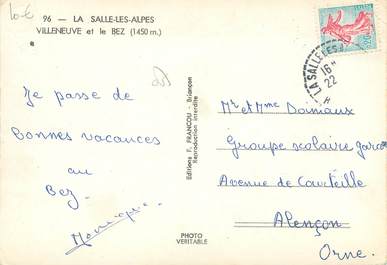 10-6
96 — LA SALLE-LES-ALPES
VILLENEUVE et le BEZ (1450 m.)
Je passe de
bonnes vacances
au
Bez.
Monique
Editions F. FRANCOU - Briançon
Reproduction interdite
PHOTO
VERITABLE
LA SALLE LES
16 H
22
Mr et Mme
Groupe scolaire garçons
Avenue de Courteille
Alençon
Orne.